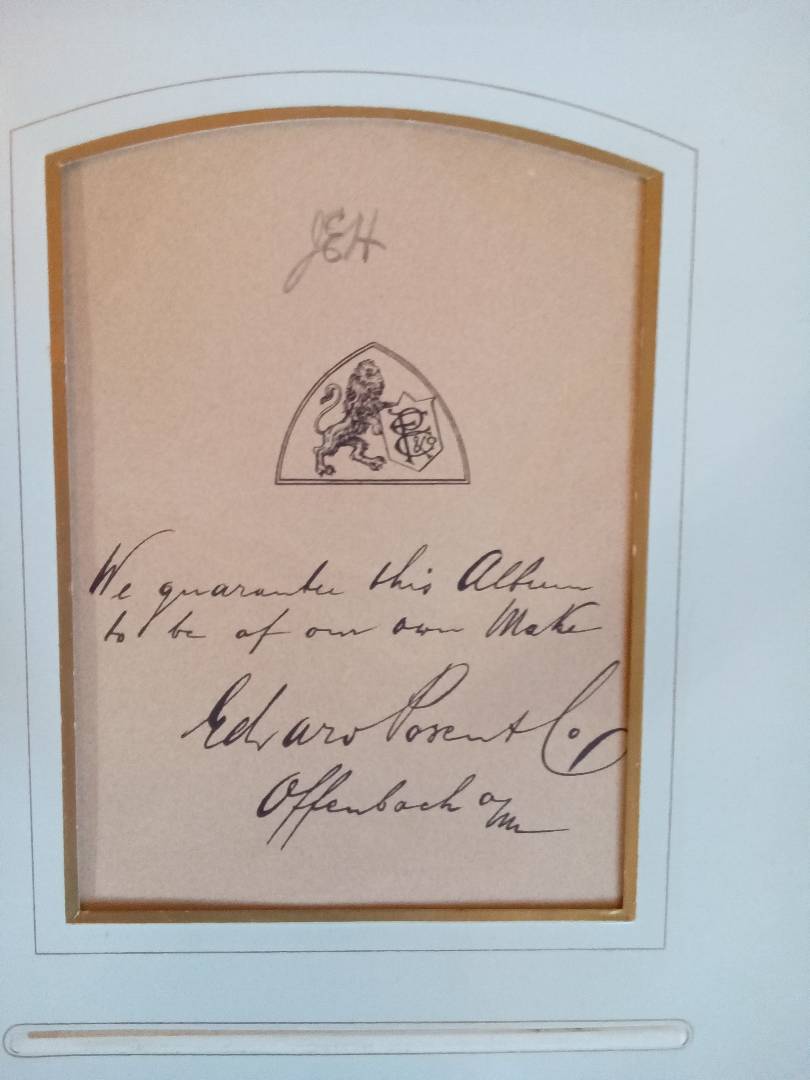 JEH
EP & Co
We guarantee this Album
to be of our own Make
Edward Posen & Co
Offenbach a/M